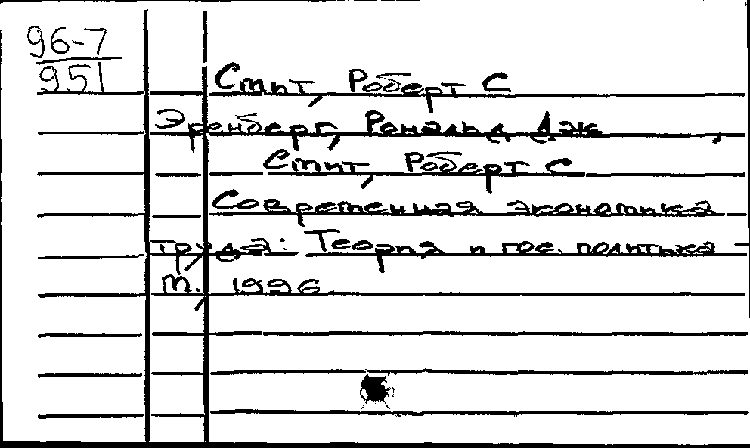 96-7
951
Смит, Роберт С
Эренберг, Рональд Дж
Смит, Роберт С
Современная экономика
труда: Теория и гос. политика -
М., 1996